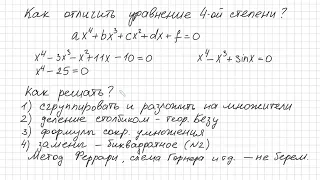 Как отличить уравнение 4-ой степени?
ax⁴+bx³+cx²+dx+f=0
x⁴-3x³-x²+11x-10=0 x⁴-x³+sinx=0
x⁴-25=0
Как решать?
1) сгруппировать и разложить на множители
2) деление столбиком - теор. Безу
3) формулы сокр. умножения
4) замены - биквадратное (N2)
Метод Феррари, схема Горнера и т.д. - не берем.